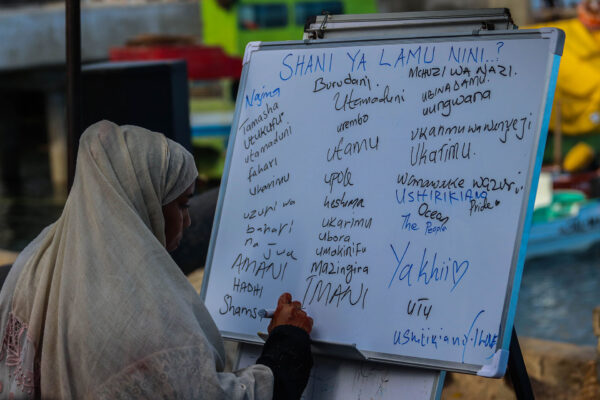 SHANI YA LAMU NINI..?
Najma
Tamasha
Utukufu
utamaduni
fahari
ukarimu
uzuri wa
bahari
na jua
AMANI
HADHI
Shams
Burudani.
Utamaduni
urembo
utamu
upole
heshima
ukarimu
ubora
umakinifu
Mazingira
IMANI
MCHUZI WA NAZI.
UBINADAMU.
uungwana
ukarimu wa wenyeji
UKARIMU.
wanawake wazuri
USHIRIKIANO
Ocean Pride
The People
Yakhii
UTU
ushirikiano